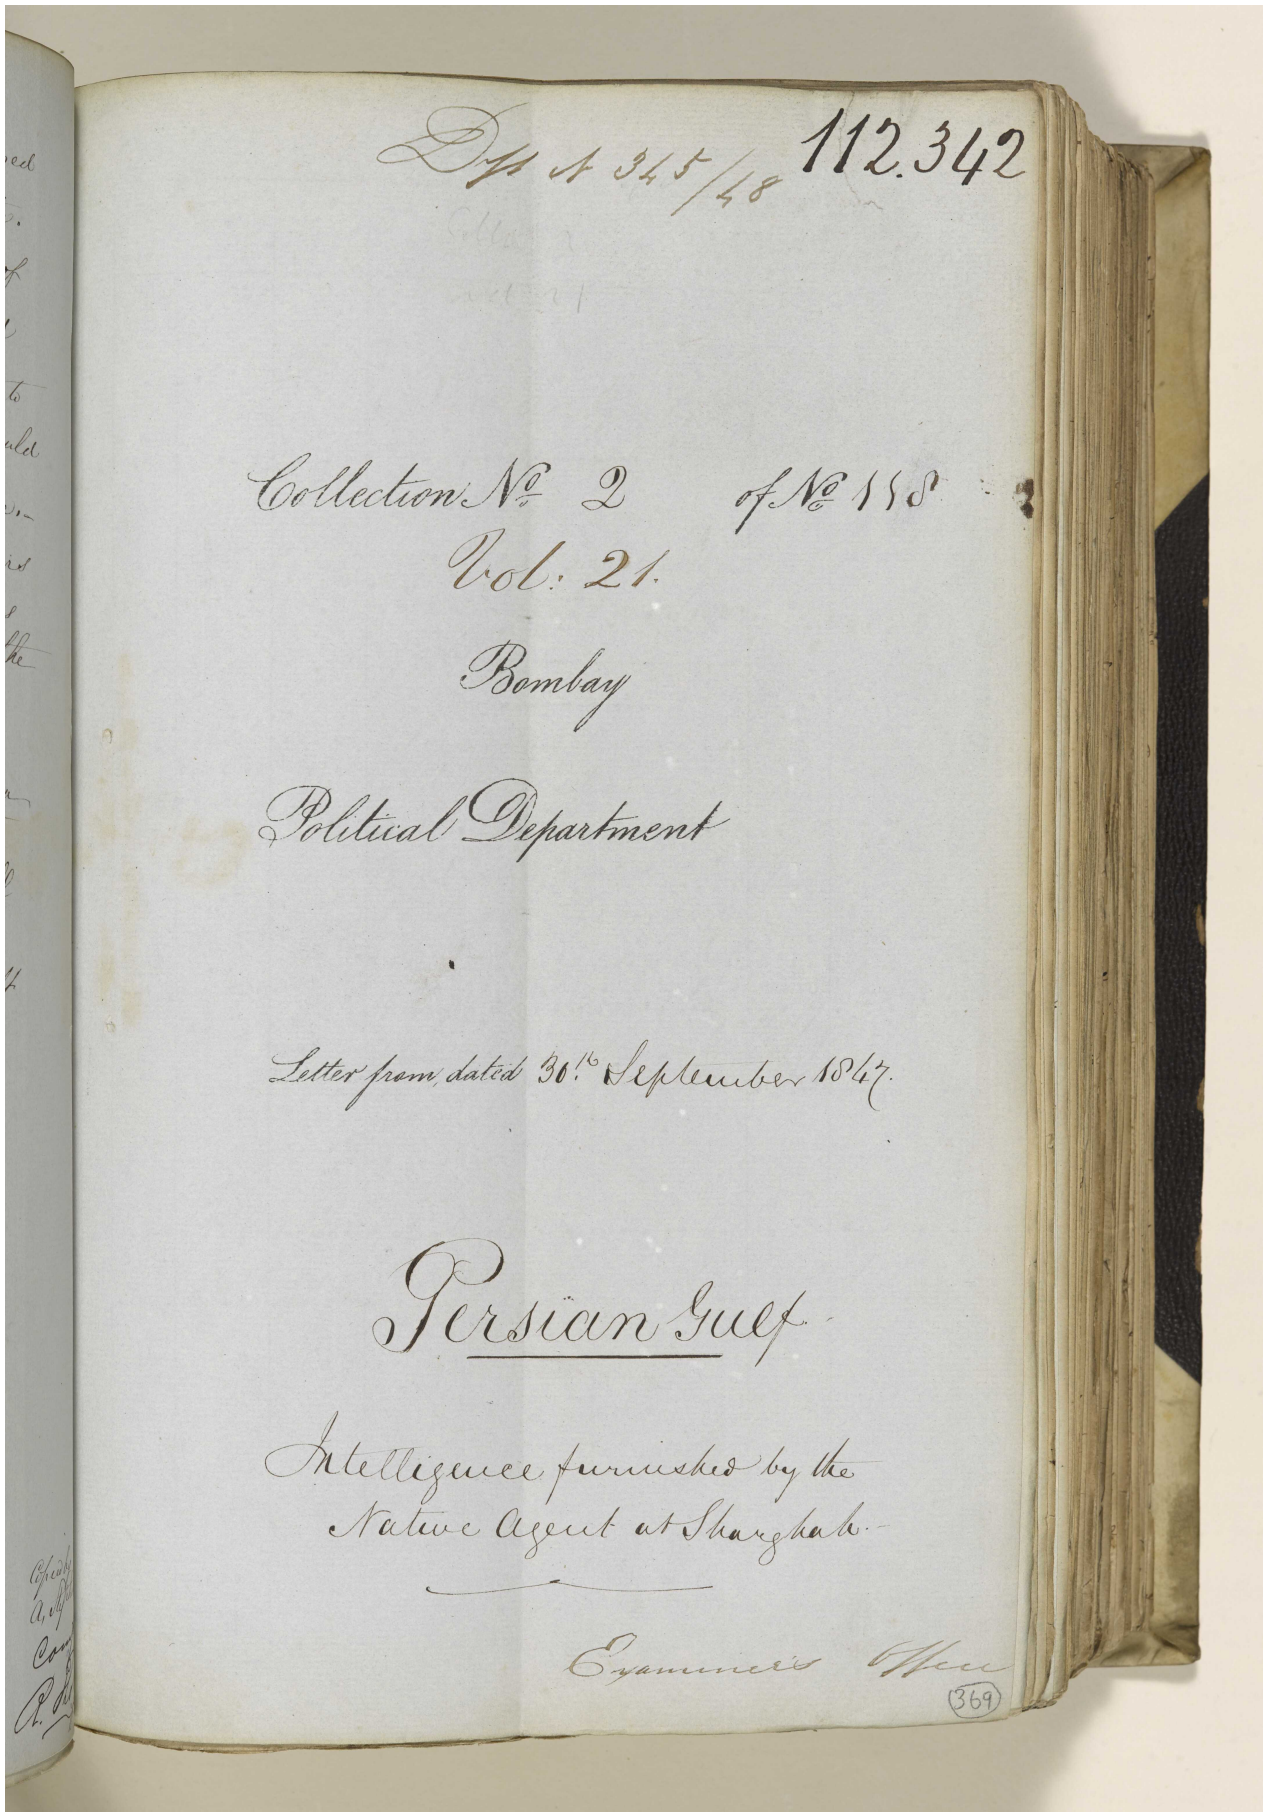 Dft N 345/48 112.342
Collection No. 2 of No. 118
Vol: 21.
Bombay
Political Department
Letter from, dated 30th September 1847.
Persian Gulf
Intelligence furnished by the
Native Agent at Sharghah.-
Examiner's Office
369
ed
of
to
uld
the